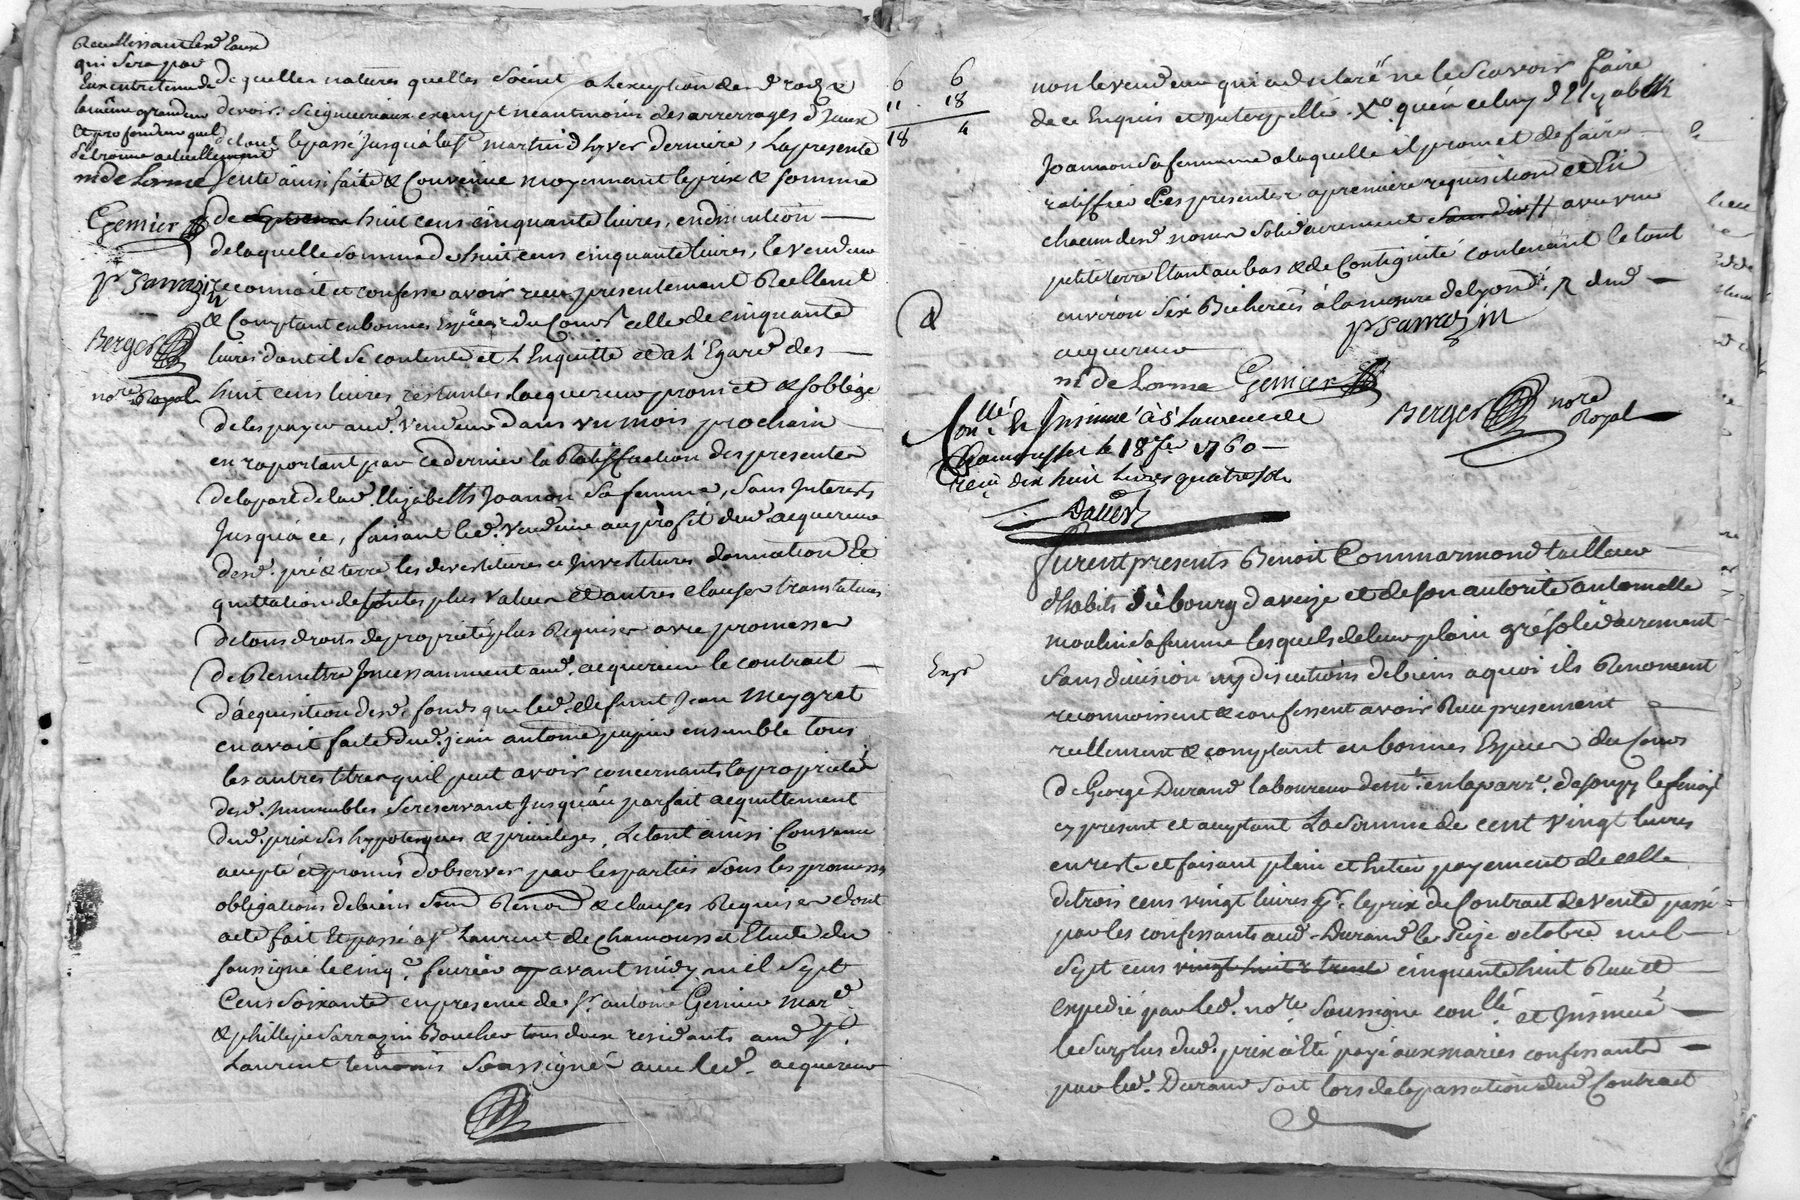 qui sera par
Eux entretenue de
la même grandeur
et profondeur quelle
se trouve actuellement
m de Lorme
Gemier
pr Sarrazin
Berger
nore Royal
de quelles natures quelles soient a lexception des rod. &
devoirs seigneuriaux exempt neantmoins des arrerrages d'Iceux
du tout le passé jusqu'a la st martin d'hyver derniere, La presente
vente ainsi faite & Convenue moyennant le prix & somme
de huit cens cinquante livres, en diminution
de laquelle somme de huit cens cinquante livres, le vendeur
reconnoit et confesse avoir reçu presentement Réellemt
& Comptant en bonnes Espèces du Cours celle de cinquante
livres dont il se contente et L'Enquitte et a L'Egard des
huit cens livres restantes Lacquereur promet & soblige
de les payer aud. vendeur dans un mois prochain
en raportant par ce dernier la Ratiffication des presentes
de la part de lad. Elizabeth Joanon sa femme, sans Interets
Jusqu'a ce, faisant led. vendeur au profit dud. acquereur
desd. pré & terre les devestitures et Investitures donnation Et
quittation de toutes plus values et autres clauses translatives
de tous droits de proprietés plus Requises avec promesse
de Remettre Incessamment aud. acquereur le contrat
d'acquisition desd. fonds que led. defunt Jean Meygret
en avoit faite dud. jean antoine pupier ensemble tous
les autres titres quil peut avoir concernants la proprieté
desd. Immeubles se reservant Jusqu'au parfait acquittement
dud. prix ses hypoteques & privileges, Le tout ainsi Convenu
accepté et promis d'observer par les parties sous les promesses
obligations de biens soum. Renon. & clauses Requises dont
acte fait Et passé a st Laurent de Chamousset Etude du
soussigné le cinq. fevrier apavant midy mil sept
Cens soixante en presence de sr antoine Gemier mard
& phillipe Sarrazin Boucher tous deux residants aud. st
Laurent temoins Soussignés avec led. acquereur
6 6
11 . 18
18 4
non le vendeur qui a declaré ne le scavoir faire
de ce Enquis et Interpellé. Xo. qu'en celuy d'Elizabeth
Joannon sa femme a laquelle il promet de faire
ratiffier Ces presentes a premiere requisition et En
chacun desd. noms solidairement // avec une
petite terre Etant au bas & de Contiguité contenant le tout
environ six Bicherées à la mesure de Lyon dud
acquereur
pr Sarrazin
m de Lorme Gemier
Berger nore Royal
Conllé & Insinué à St Laurent de
Chamousset le 18 fer 1760
reçu dix huit Livres quatre sols
Furent presents Benoit Commarmond tailleur
d'habits du bourg d'aveize et de son autorité antoinette
moulin sa femme lesquels de leur plein gré solidairement
sans division ny discutions de biens a quoi ils Renoncent
reconnoissent & confessent avoir Reçu presement
reellement & comptant en bonnes Especes du Cours
de George Durand laboureur demt. en la parre.
cy present et acceptant La somme de cent vingt livres
en reste et faisant plein et Entier payement de celle
de trois cens vingt livres pr. le prix du Contract de vente passé
par les confessants aud. Durand le seize octobre mil
sept cens vingt huit & trente cinquante huit Reçu et
expedié par led. nore. soussigné conllé et Insinué
le surplus dud. prix a Eté payé aux mariés confessants
par led. Durand soit lors de la passation dud. Contract